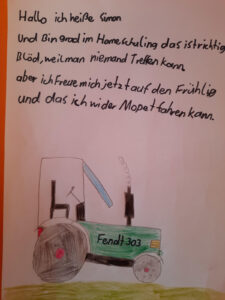 Hallo ich heiße Simon
und Bin grad im Homeschuling das ist richtig
Blöd, weil man niemand Treffen kann.
aber ich Freue mich jetzt auf den Frühlig
und das ich wider Mopet fahren kann.
Fendt 303